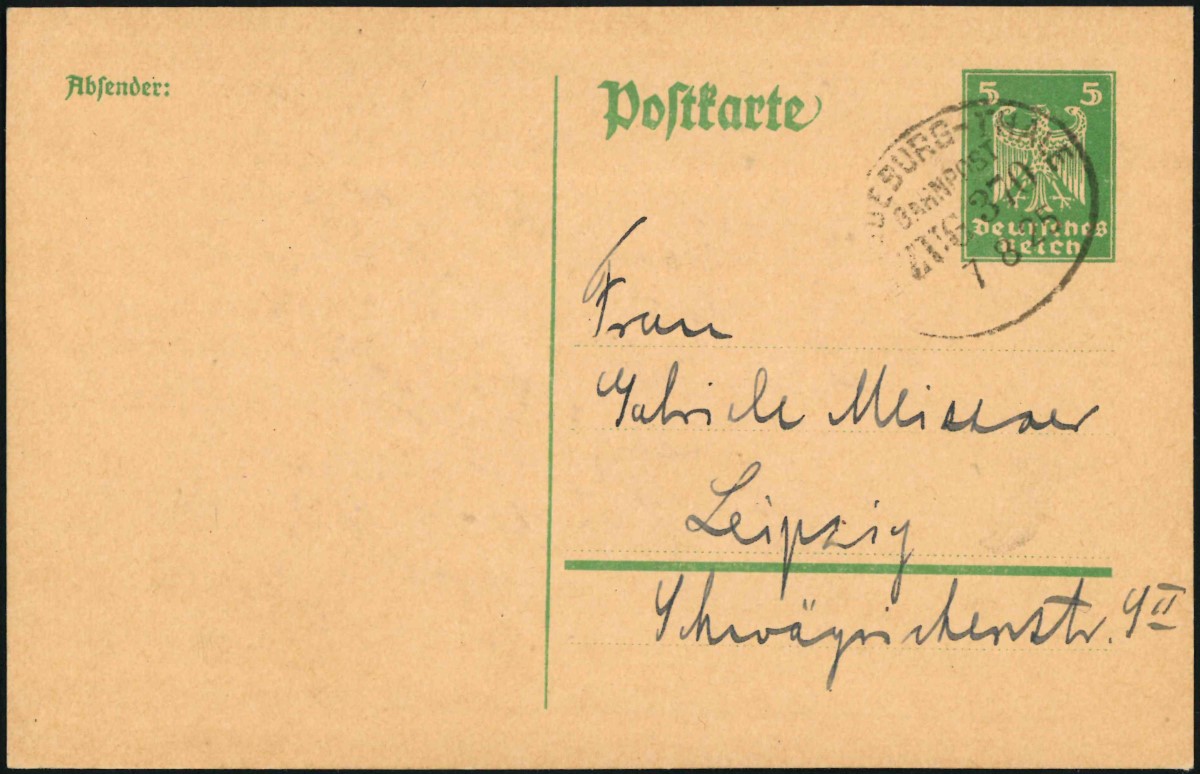 Absender:
Postkarte
5 5
Deutsches
Reich
DEBURG-THALE
BAHNPOST
ZUG 370
7 8 25
Frau
Gabriele Meissner
Leipzig
Schwägrichenstr. 9 II